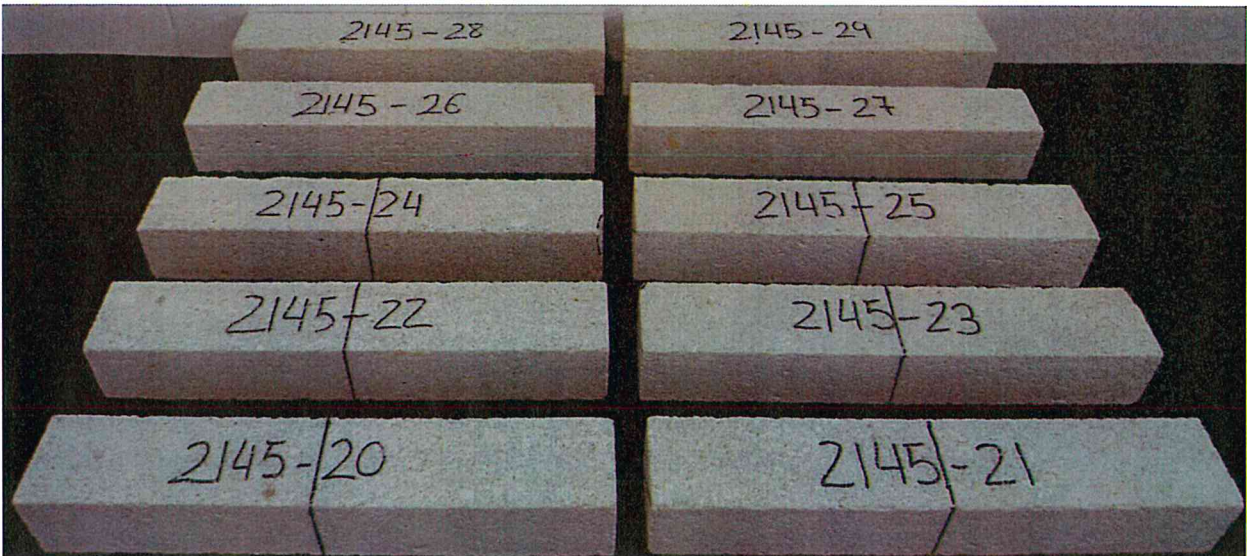 2145-28
2145-29
2145-26
2145-27
2145-24
2145-25
2145-22
2145-23
2145-20
2145-21